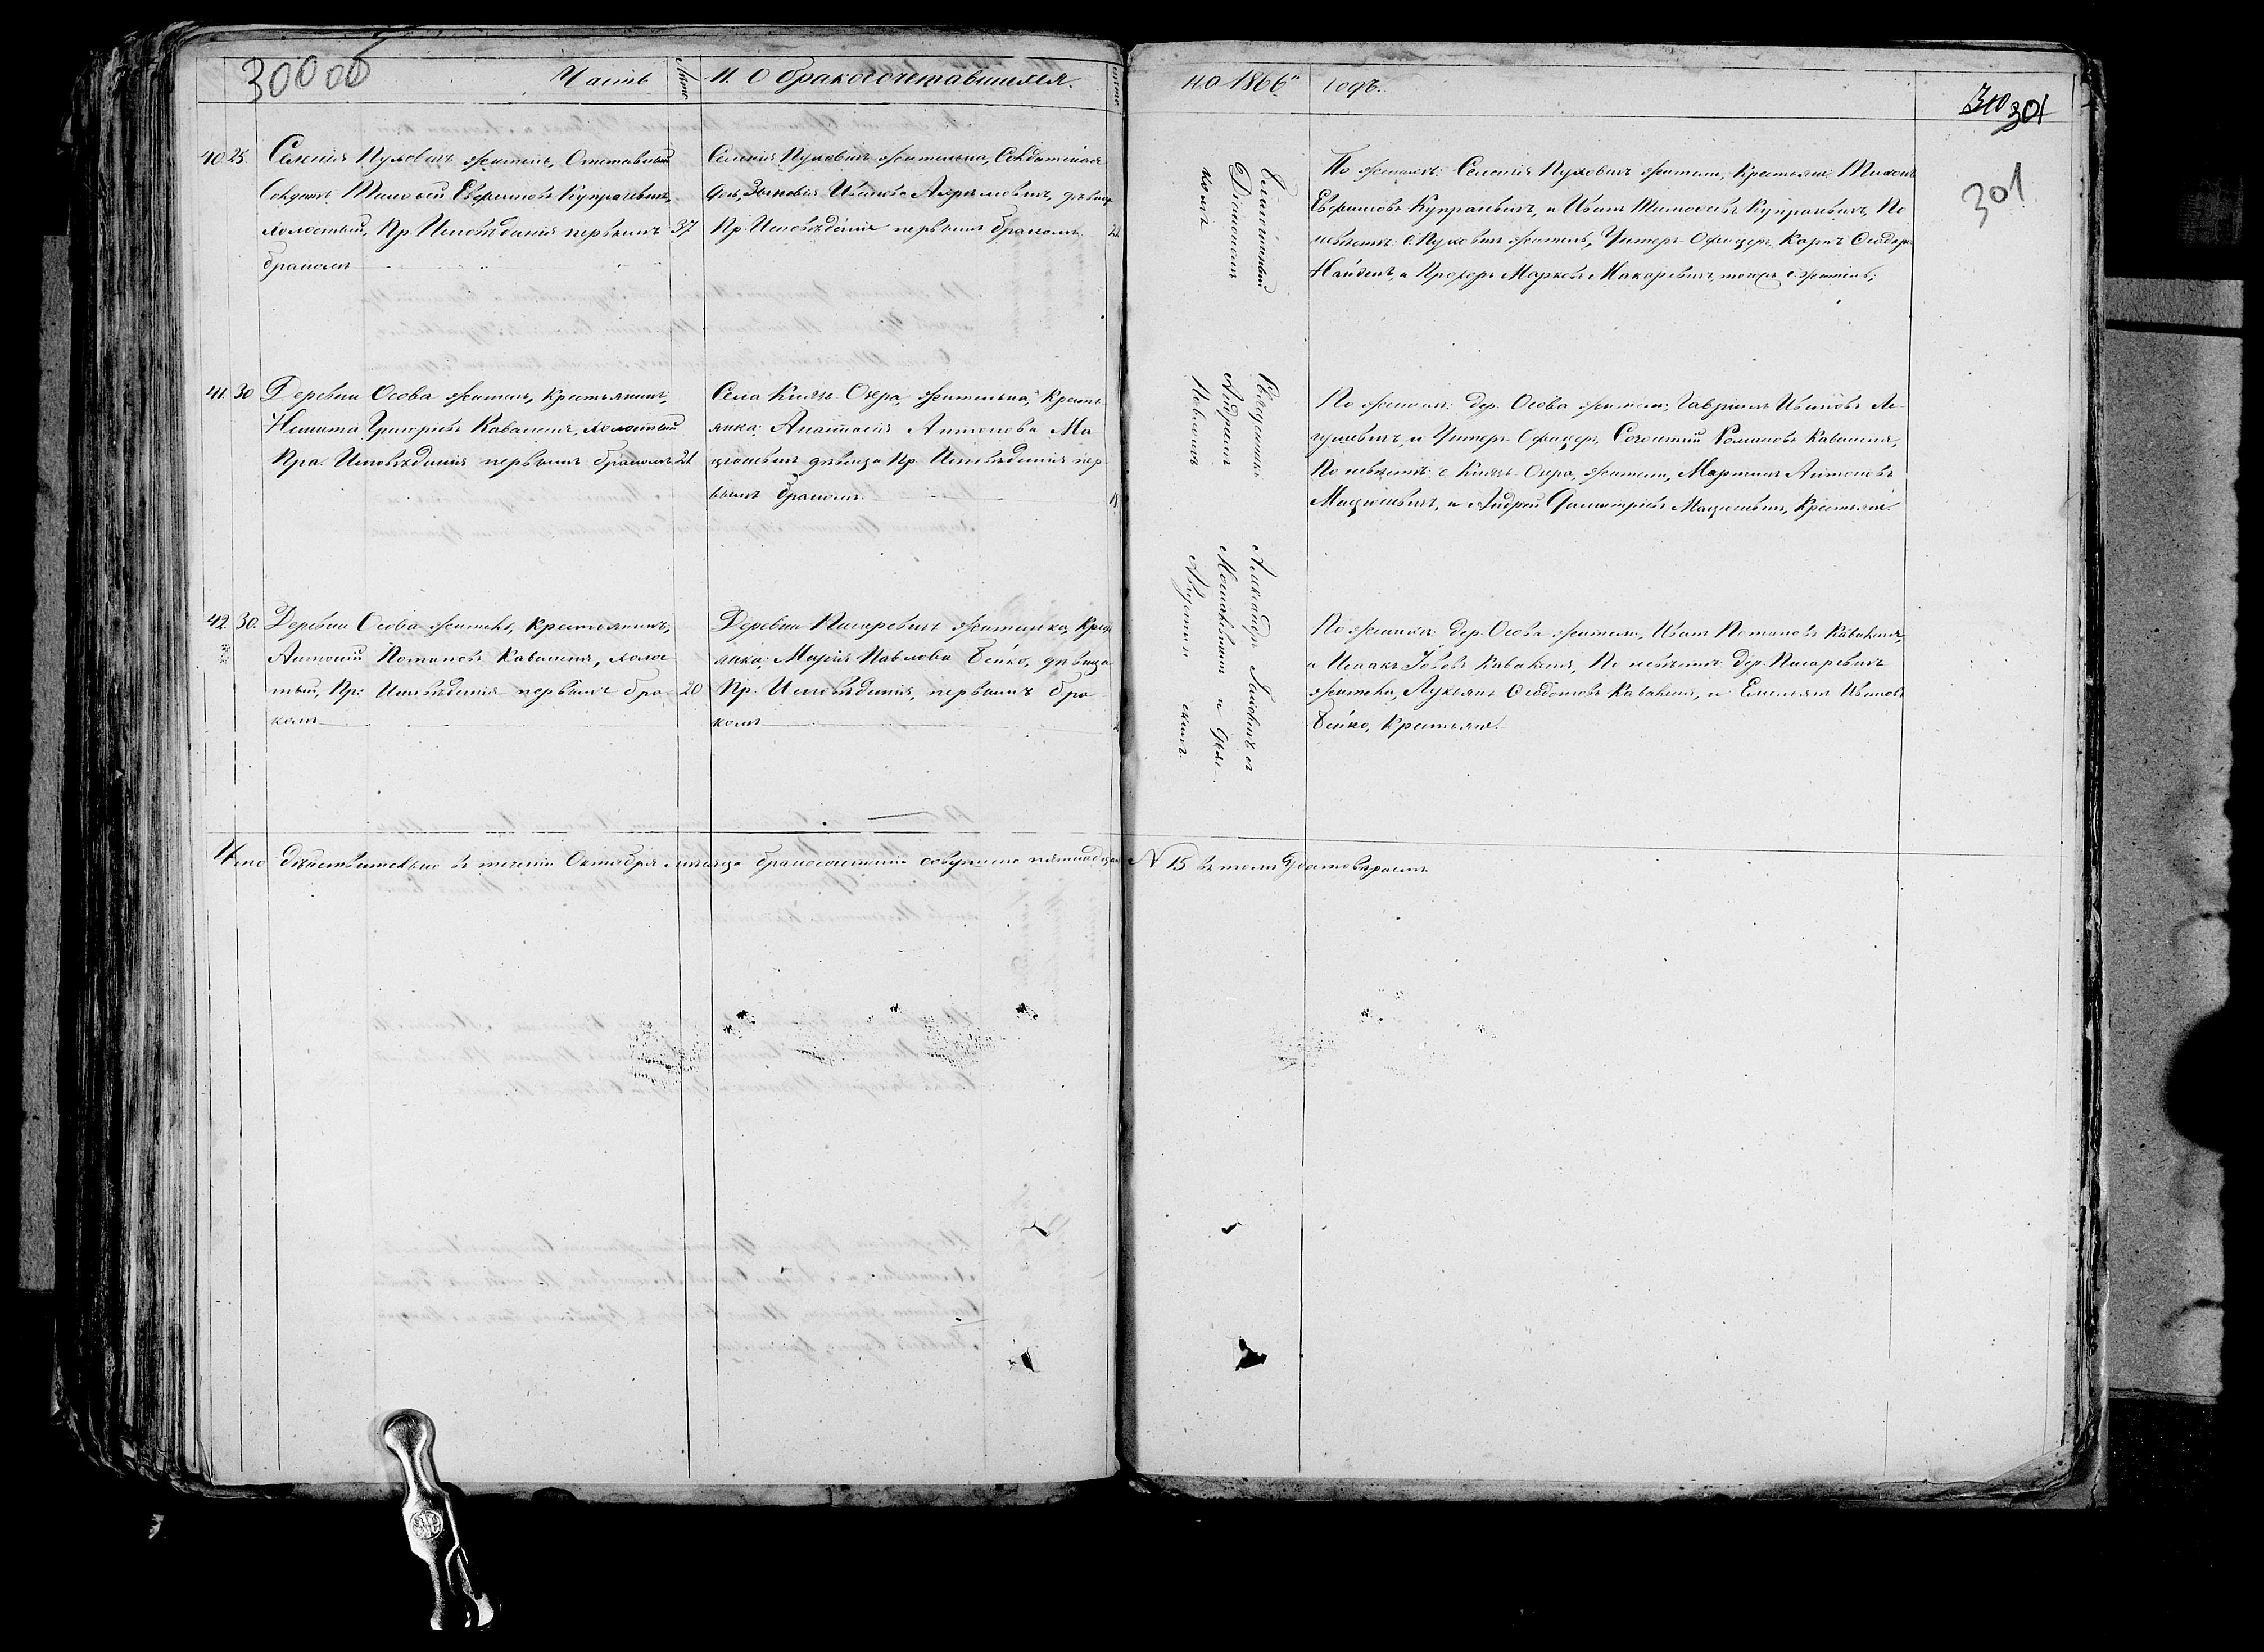 300 об
Часть
Лѣта
II. О бракосочетавшихся.
на 1866й годъ.
301
301
40. 25. Селенія Пуховичъ житель, Отставный
Солдатъ Тимофей Евфимовъ Купраевичъ,
холостый, Пр. Исповѣданія первымъ 37
бракомъ
Селенія Пуховичъ жительна, Солдатская
дочь, Зиновія Иванова дѣвица
Пр. Исповѣданія первымъ бракомъ
Благочинный
Діаконом
По женихѣ: Селенія Пуховичъ жители, Крестьяне Тихонъ
Евфимовъ Купраевичъ, и Иванъ Тимофеевъ Купраевичъ, По
невѣстѣ: с. Пуховичъ житель, Унтеръ-Офицеръ, Карпъ Ѳеодоровъ
Найденъ, и Прохоръ Марковъ Макаревичъ, тогожъ с. житель,
41. 30 Деревни Осова житель, Крестьянинъ,
Никита Григорьевъ Каваленя, холостый
Пра. Исповѣданія первымъ бракомъ 21
Села Князь-Озера, жительна, Кресть
янка, Анастасія Антонова Ма
цкевичъ дѣвица Пр. Исповѣданія пер
вымъ бракомъ.
18
Священникъ
Андреемъ
По женихѣ: дер. Осова жители, Гавріилъ Ивановъ Ле
гушевичъ, и Унтеръ-Офицеръ, Романовъ Каваленя,
По невѣстѣ: с. Князь-Озера, жители, Мартинъ Антоновъ
Мацкевичъ, и Андрей Димитріевъ Мацкевичъ, Крестьяне.
42. 30. Деревни Осова житель, Крестьянинъ,
Антоній Потаповъ Каваленя, холос
тый, Пр: Исповѣданія первымъ бра- 20
комъ
Деревни Писаревичъ жителька, Кресть
янка, Марія Павлова Бейко, дѣвица
Пр. Исповѣданія, первымъ бра
комъ
Александръ съ
и Дья
По женихѣ: дер. Осова жители, Иванъ Потаповъ Каваленя,
и Исаакъ Іововъ Каваленя, По невѣстѣ: дер. Писаревичъ
жители, Лукьянъ Ѳеодотовъ Каваленя, и Емельянъ Ивановъ
Бейко, Крестьяне.
Что дѣйствительно въ теченіи Октября мѣсяца бракосочетаній совершено пятнадцать N 15 въ томъ удостовѣряемъ